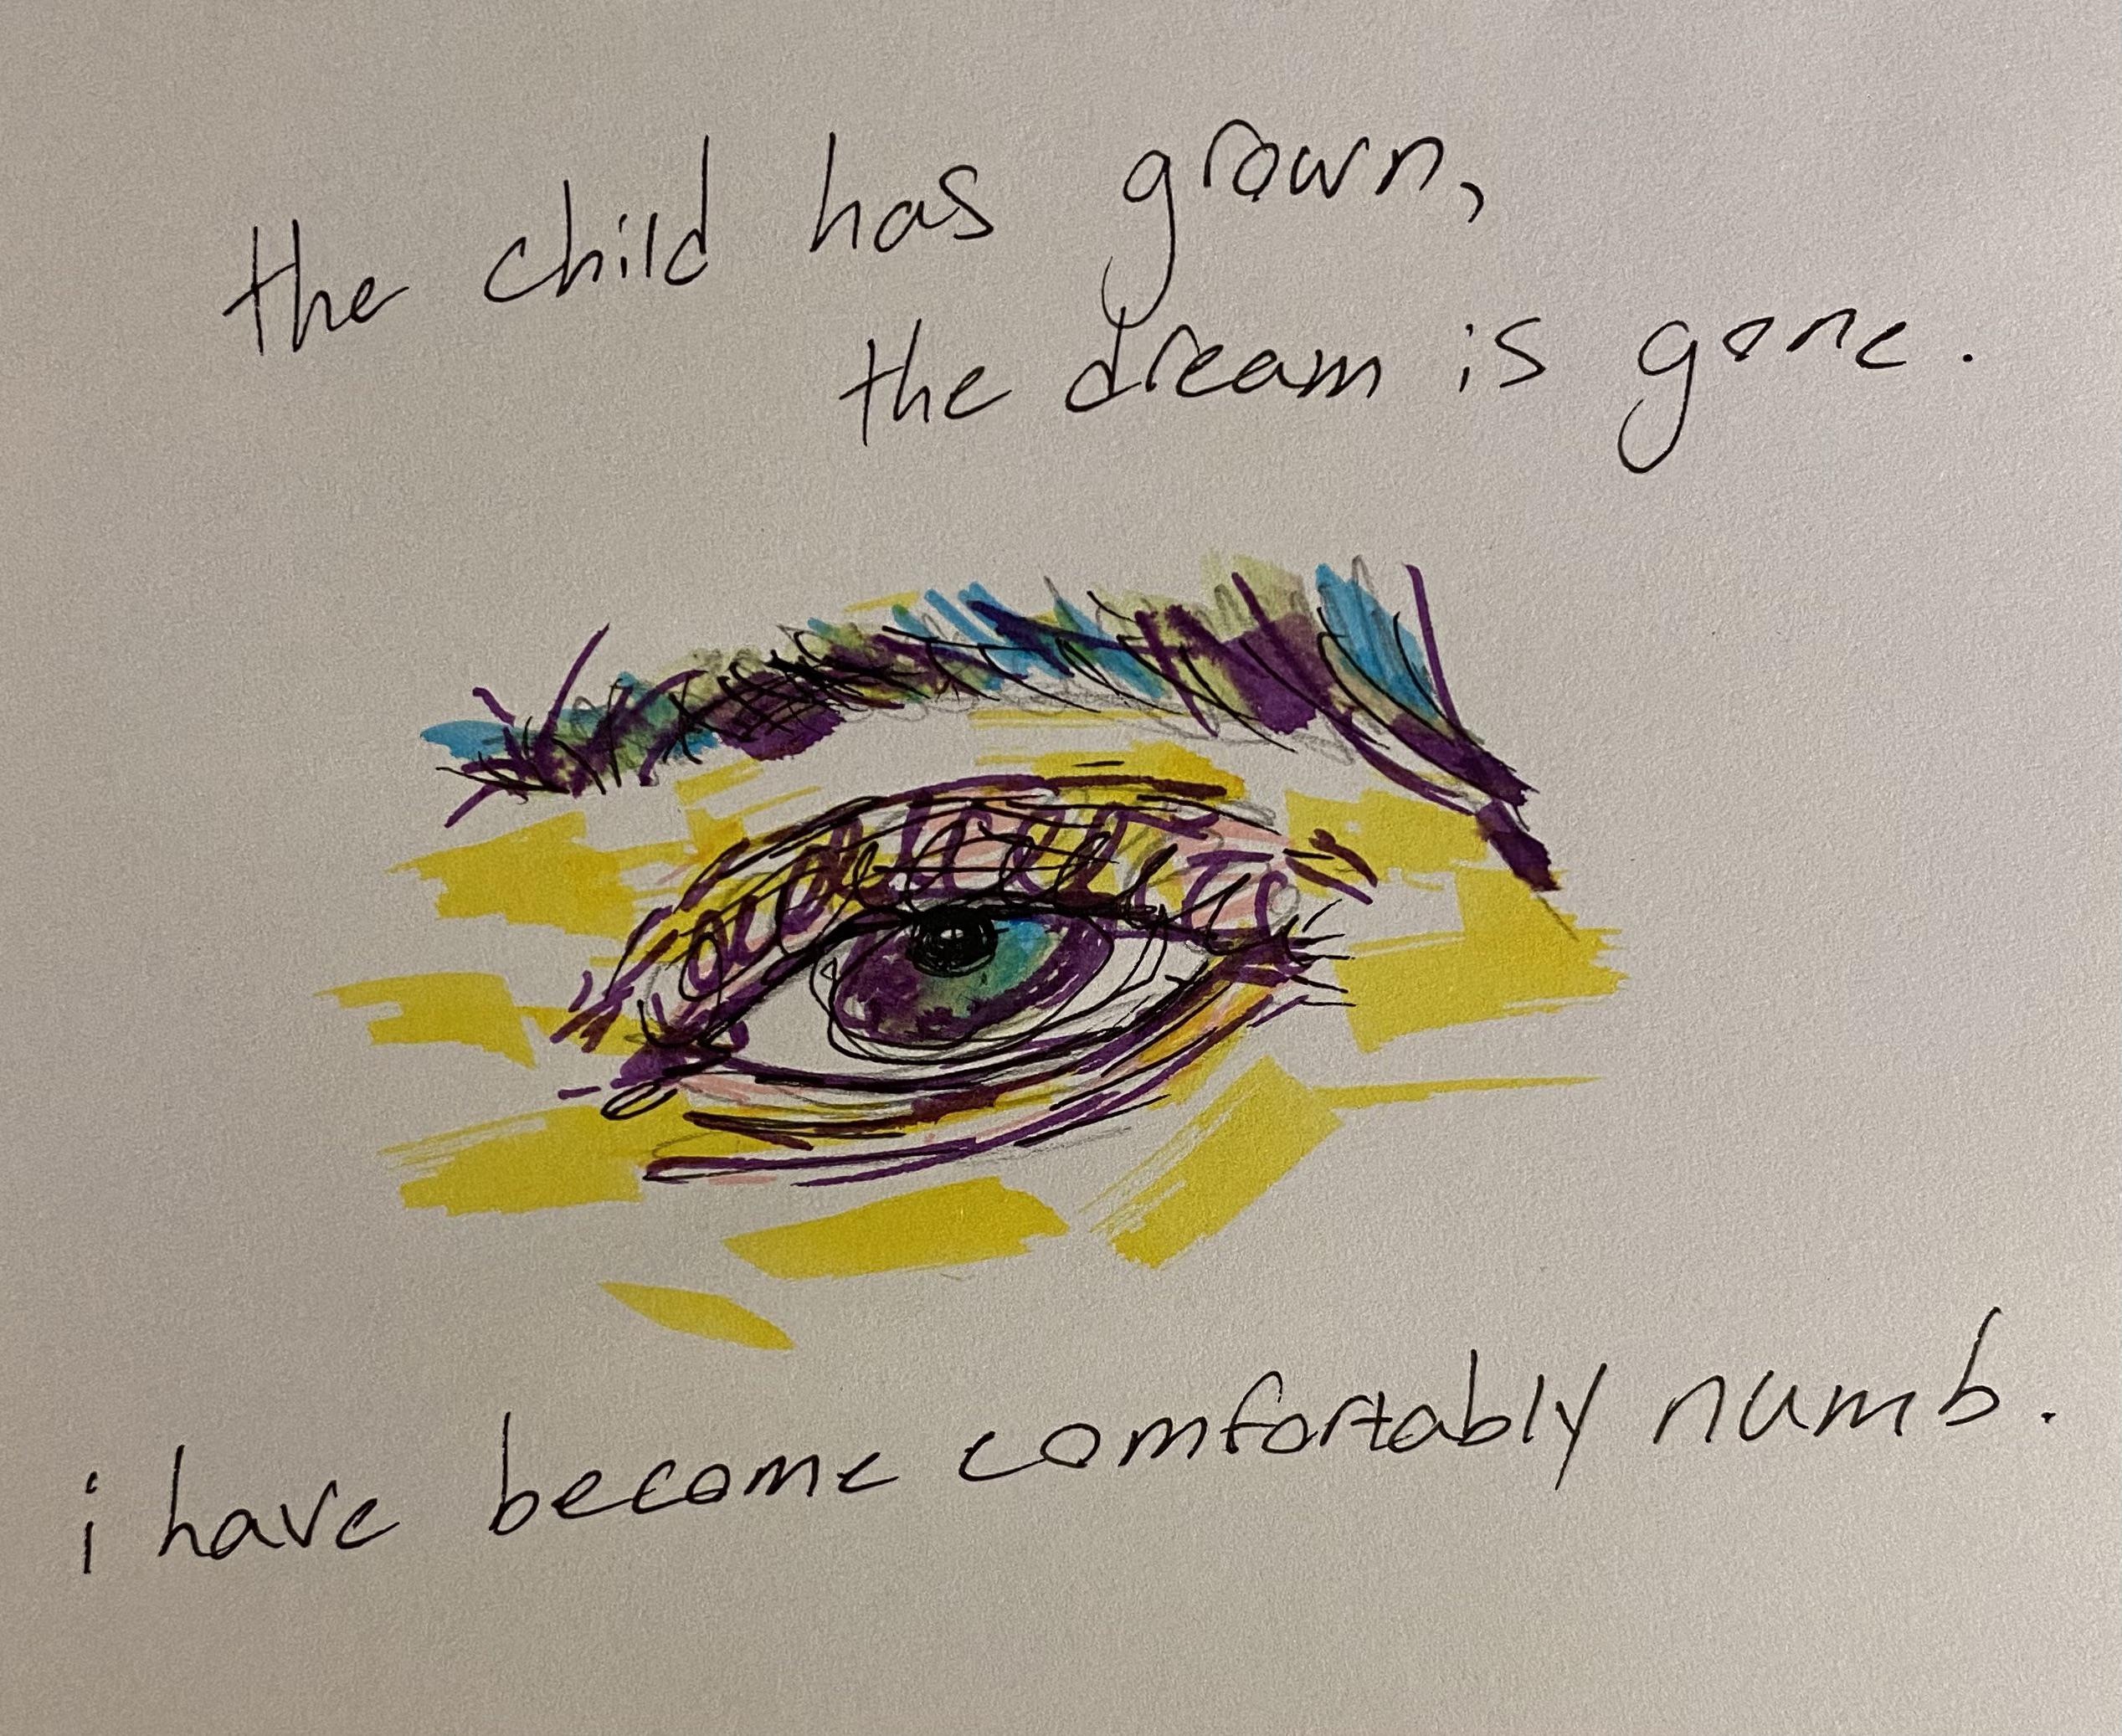 the child has grown,
the dream is gone.
i have become comfortably numb.